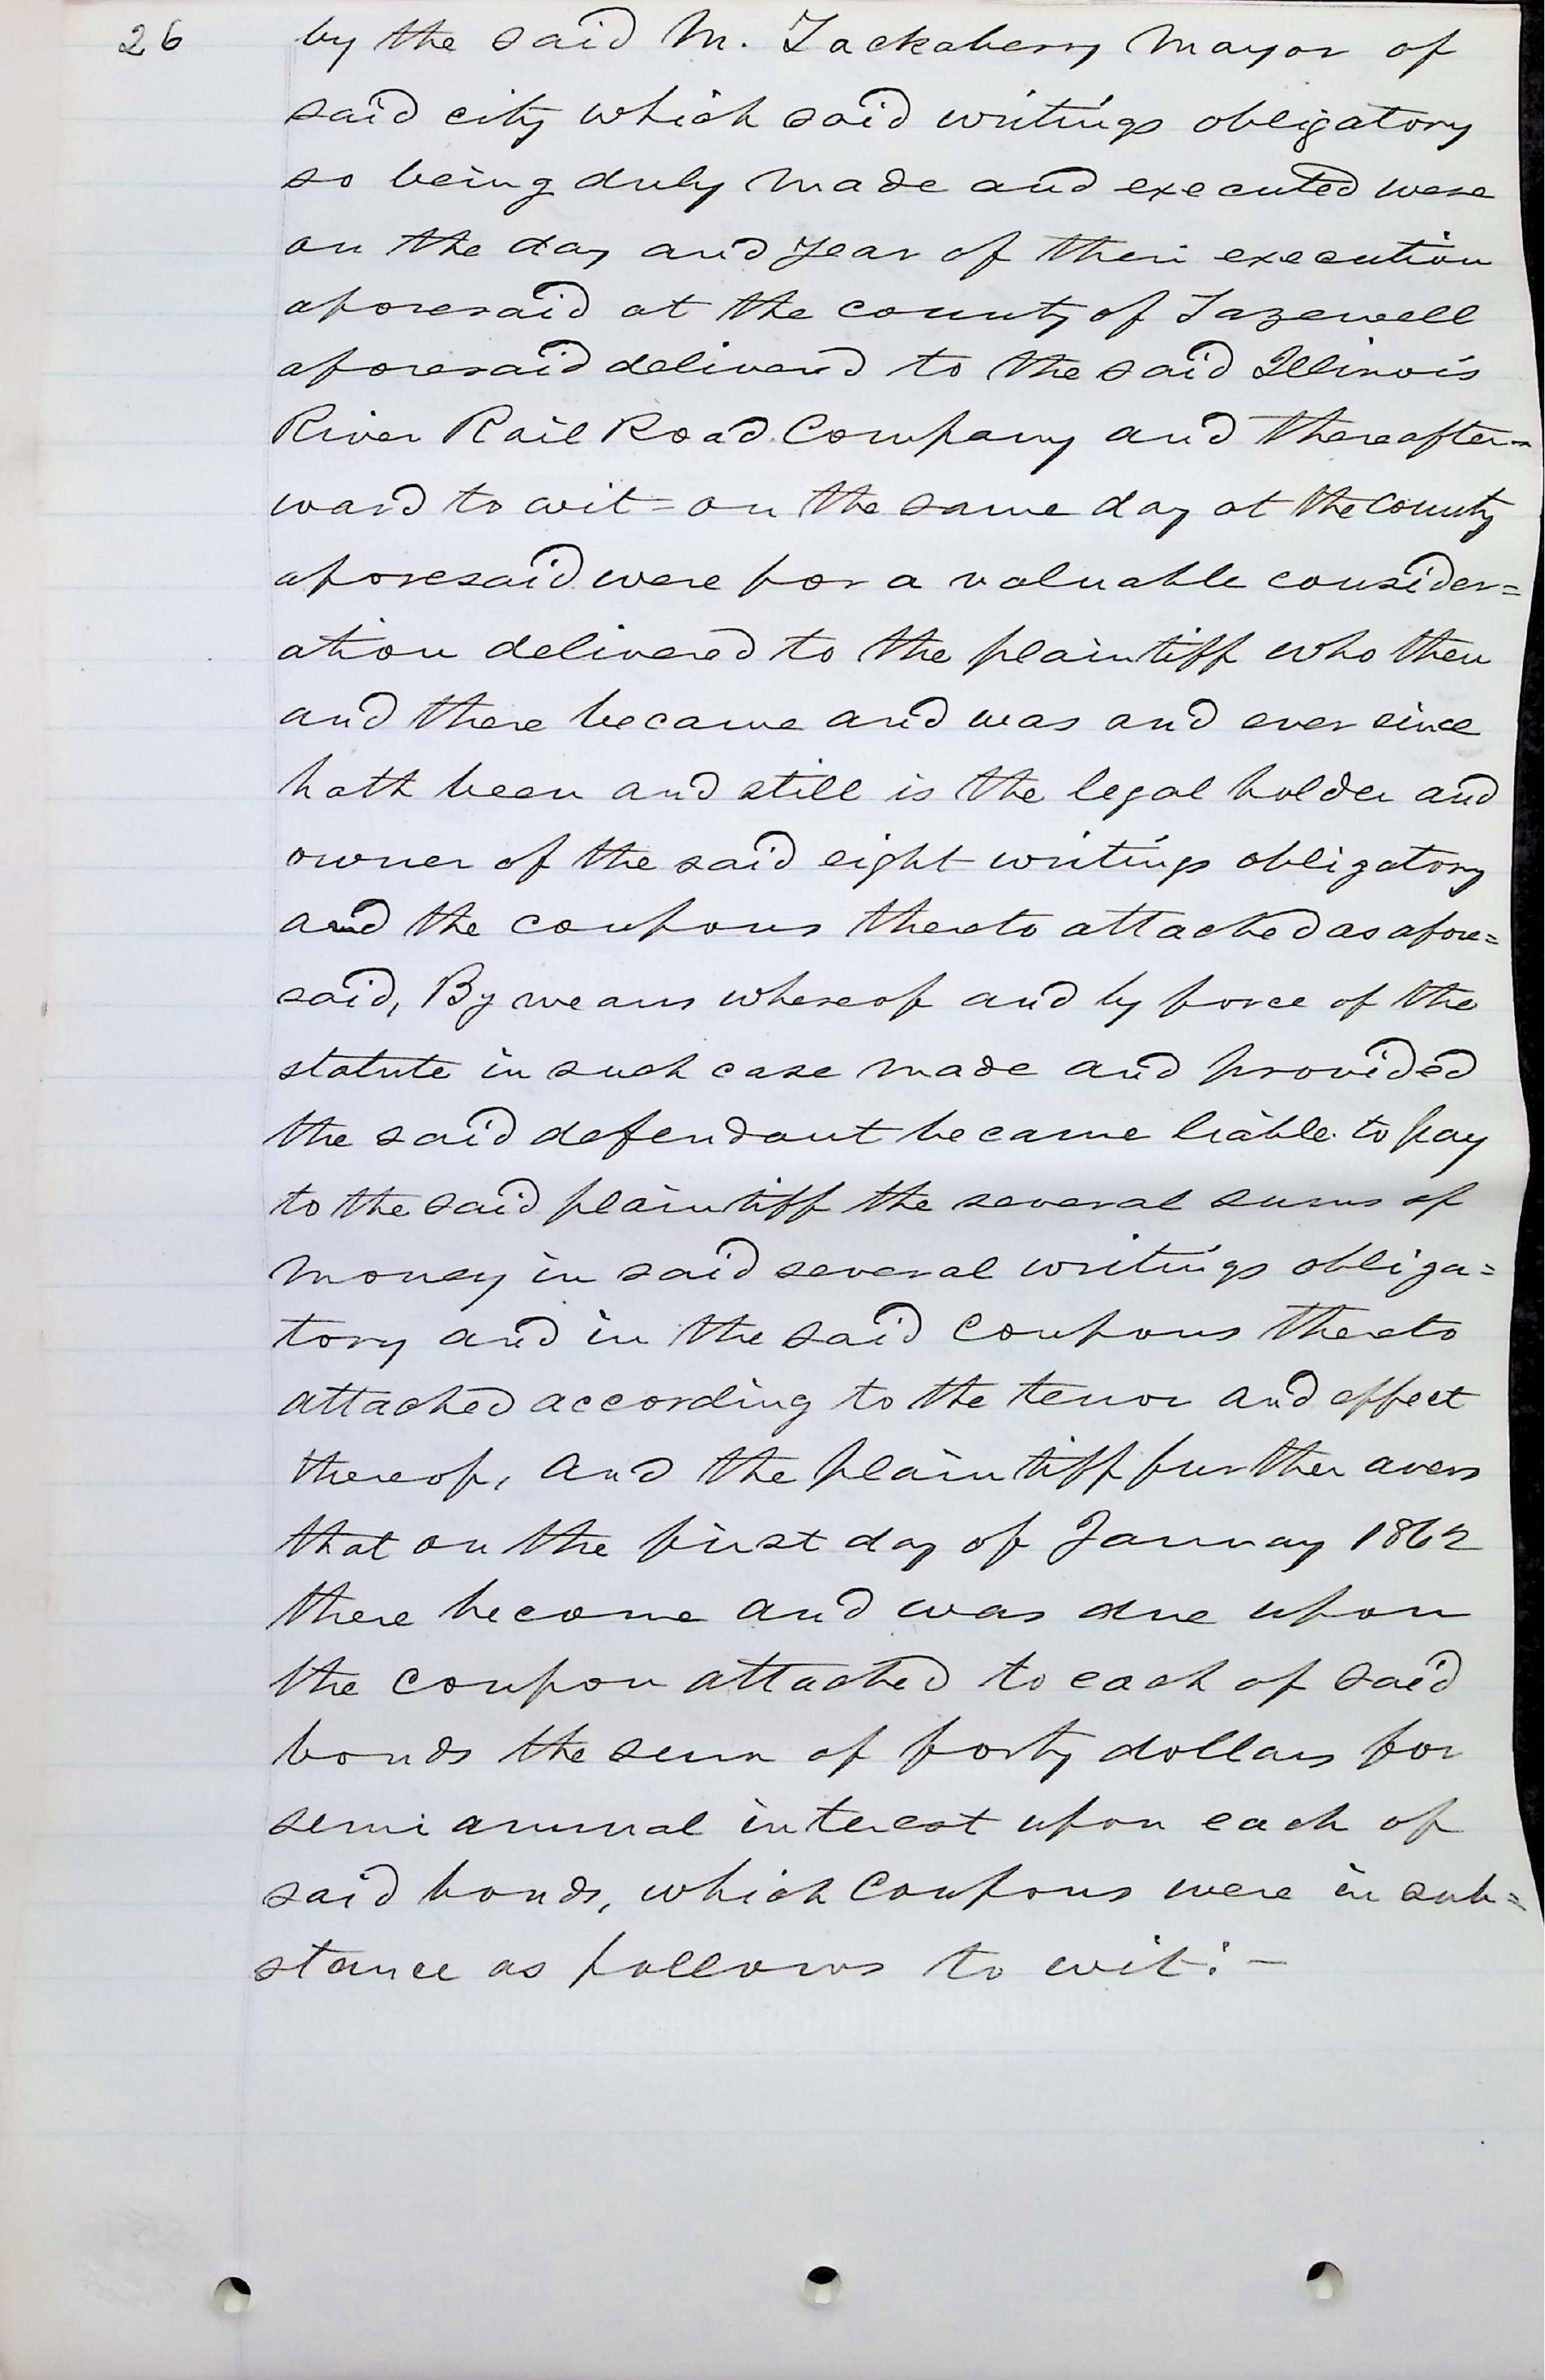 26 by the said M. Tackaberry Mayor of
said city which said writings obligatory
so being duly made and executed were
on the day and year of their execution
aforesaid at the county of Tazewell
aforesaid delivered to the said Illinois
River Rail Road Company and thereafter-
ward to wit = on the same day at the County
aforesaid were for a valuable consider=
ation delivered to the plaintiff who then
and there became and was and ever since
hath been and still is the legal holder and
owner of the said eight writings obligatory
and the coupons thereto attached as afore=
said, By means whereof and by force of the
statute in such case made and provided
the said defendant became liable to pay
to the said plaintiff the several sums of
money in said several writings obliga=
tory and in the said Coupons thereto
attached according to the tenor and effect
thereof, And the plaintiff further avers
that on the first day of January 1862
there become and was due upon
the coupon attached to each of said
bonds the sum of forty dollars for
semi annual interest upon each of
said bonds, which Coupons were in sub=
stance as follows to wit: –